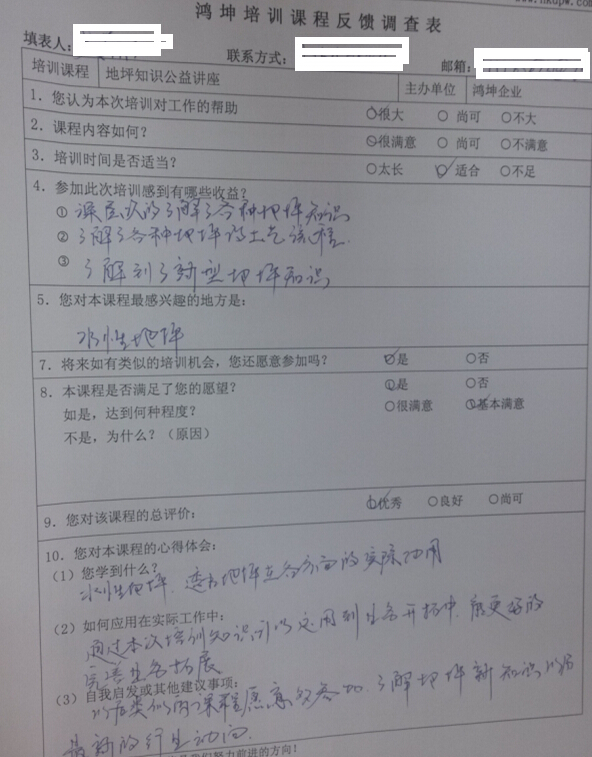 www.hkdpw.com
鸿坤培训课程反馈调查表
填表人： 联系方式： 邮箱：
培训课程 地坪知识公益讲座 主办单位 鸿坤企业
1. 您认为本次培训对工作的帮助 ○很大 ○ 尚可 ○不大
2. 课程内容如何？ ○很满意 ○ 尚可 ○不满意
3. 培训时间是否适当？ ○太长 ○ 适合 ○不足
4. 参加此次培训感到有哪些收益？
① 深层次的了解了各种地坪知识
② 了解了各种地坪的工艺流程.
③ 了解到了新型地坪知识
5. 您对本课程最感兴趣的地方是：
水性地坪
7. 将来如有类似的培训机会，您还愿意参加吗？ ○是 ○否
8. 本课程是否满足了您的愿望？ ○是 ○否
如是，达到何种程度？ ○很满意 ○基本满意
不是，为什么？（原因）
9. 您对该课程的总评价： ○优秀 ○良好 ○尚可
10. 您对本课程的心得体会：
（1）您学到什么？
水性地坪. 地坪在各方面的实际功用
（2）如何应用在实际工作中：
通过本次培训知识可以运用到业务开拓中, 能更好的
完善业务拓展
（3）自我启发或其他建议事项：
以后类似的课程愿意多参加, 了解地坪新知识以及
最新的行业动向.
是我们努力前进的方向！